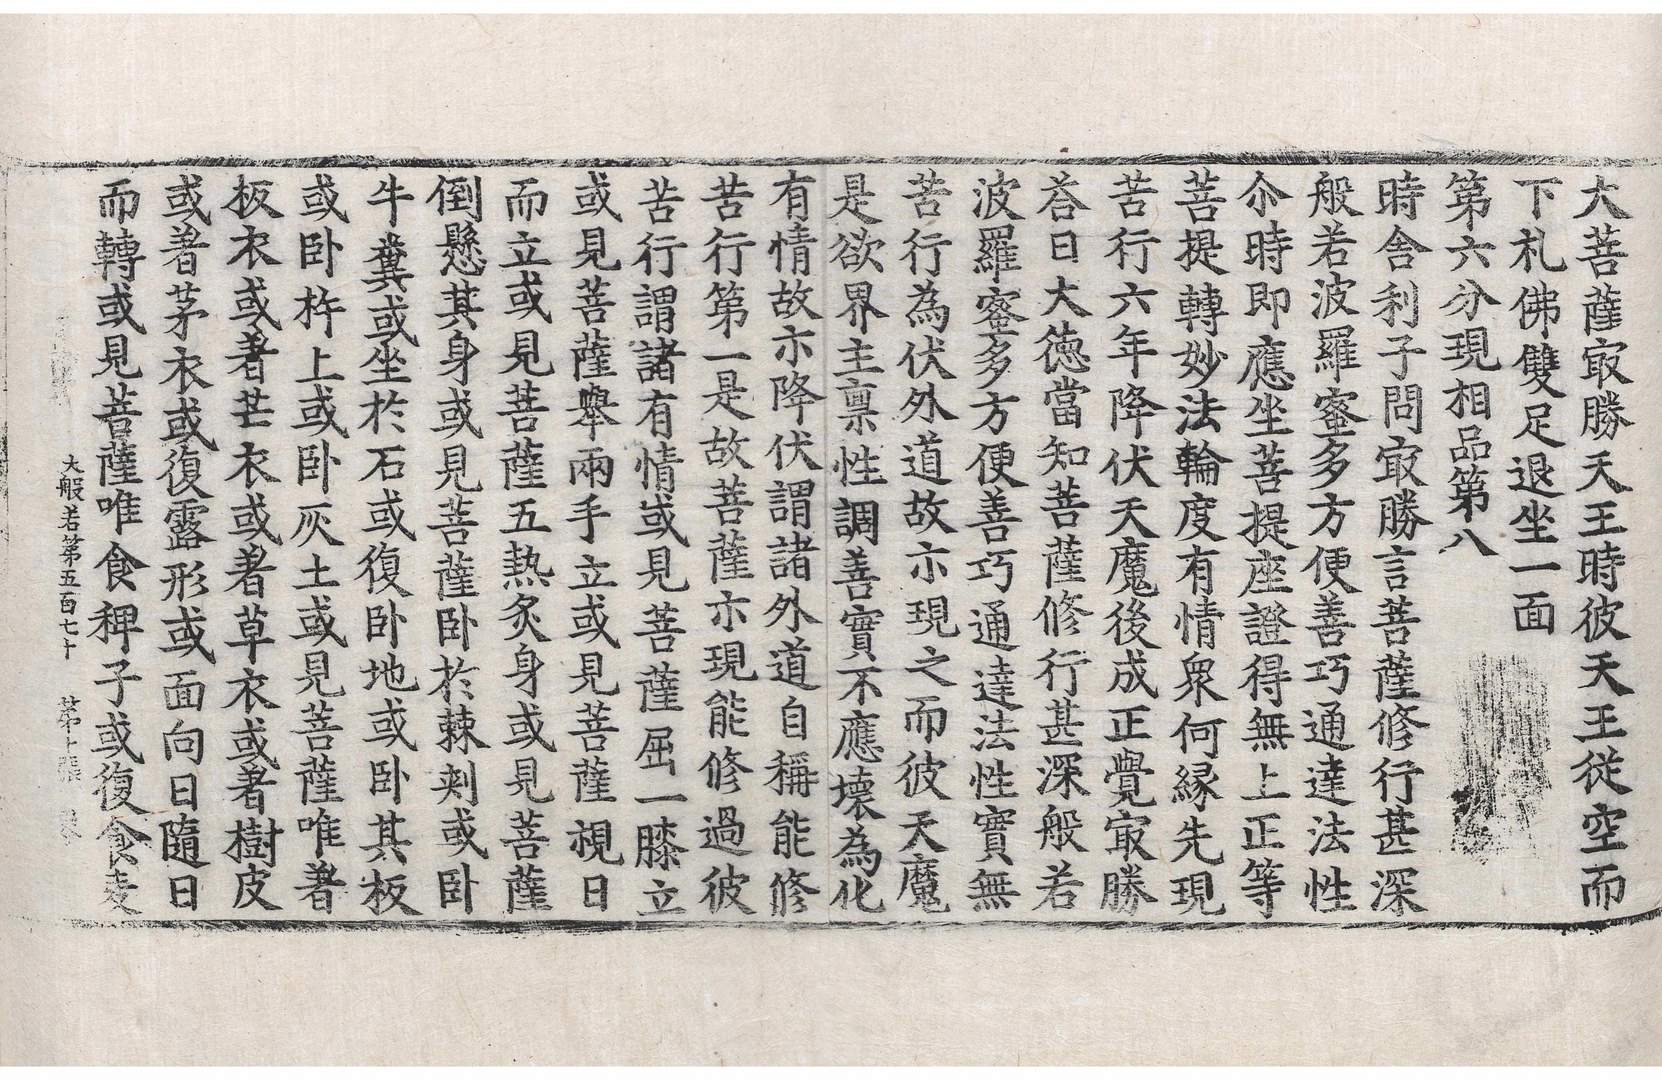 大菩薩㝡勝天王時彼天王從空而
下札佛雙足退坐一面
第六分現相品第八
時舍利子問㝡勝言菩薩修行甚深
般若波羅蜜多方便善巧通達法性
尒時即應坐菩提座證得無上正等
菩提轉妙法輪度有情衆何緣先現
苦行六年降伏天魔後成正覺㝡勝
荅曰大德當知菩薩修行甚深般若
波羅蜜多方便善巧通達法性實無
苦行為伏外道故亦現之而彼天魔
是欲界主禀性調善實不應壞為化
有情故亦降伏謂諸外道自稱能修
苦行第一是故菩薩亦現能修過彼
苦行謂諸有情或見菩薩屈一膝立
或見菩薩舉兩手立或見菩薩視日
而立或見菩薩五熱炙身或見菩薩
倒懸其身或見菩薩卧於棘刾或卧
牛糞或坐於石或復卧地或卧其板
或卧杵上或卧灰土或見菩薩唯著
板衣或著芒衣或著草衣或著樹皮
或著茅衣或復露形或面向日隨日
而轉或見菩薩唯食稗子或復食麦
大般若第五百七十 第十張